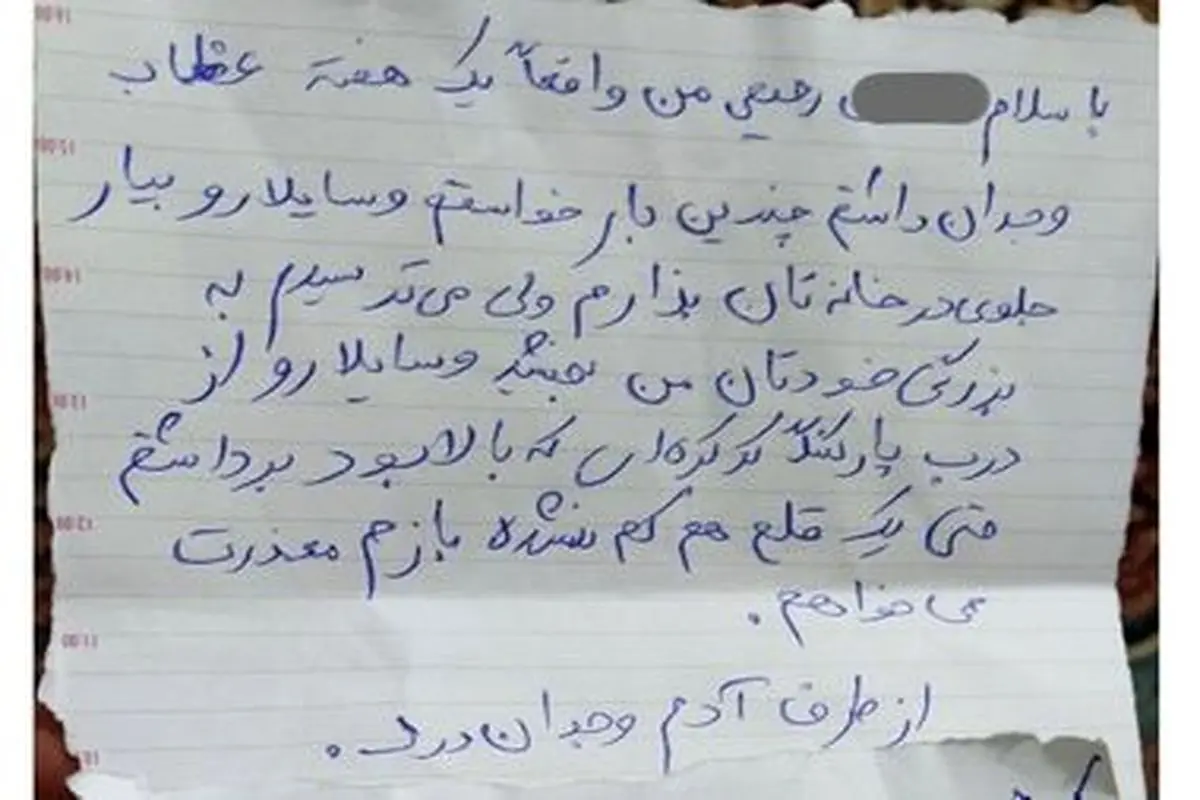 با سلام رحیمی من واقعاً یک هفته عظاب
وجدان داشتم چندین بار خواستم وسایلا رو بیار
جلوی در خانه تان بزارم ولی می ترسیدم به
بزرگی خودتان من ببخشید وسایلا رو از
درب پارکینگ کرکره ای که بالا بود برداشتم
حتی یک قلع هم کم نشده بازم معذرت
می خواهم.
از طرف آدم وجدان درد.
16:00
15:00
14:00
13:00
12:00
11:00